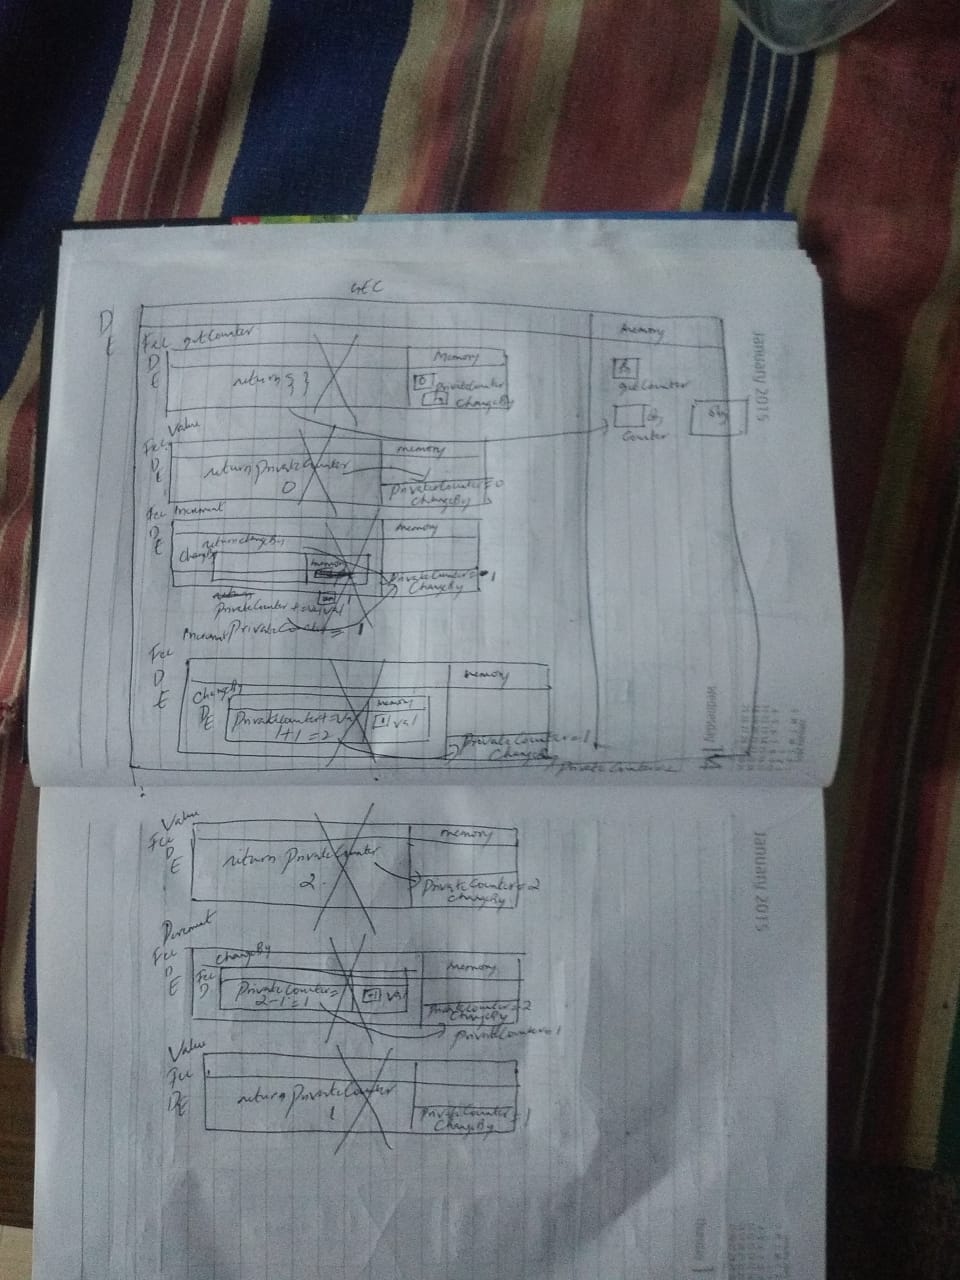 GEC
D
E
Memory
Fec getCounter
D
E
return { }
Memory
0 privateCounter
fn ChangeBy
fn
getCounter
fn
Counter
Obj
Value
Fec
D
E
return PrivateCounter
0
memory
PrivateCounter = 0
ChangeBy
Fec Increment
D
E
return changeBy
ChangeBy
memory
memory
PrivateCounter = 1
ChangeBy
PrivateCounter += val
Increment PrivateCounter = 1
Fec
D
E
memory
ChangeBy
DE
PrivateCounter += val
1+1=2
memory
1 val
PrivateCounter = 1
ChangeBy
PrivateCounter=2
January 2015
Wednesday 14
Value
Fec
D
E
return PrivateCounter
2
memory
PrivateCounter = 2
ChangeBy
Decrement
Fec
D
E
ChangeBy
Fec
D
PrivateCounter =
2-1=1
-1 val
memory
PrivateCounter = 2
ChangeBy
PrivateCounter=1
Value
Fec
DE
return PrivateCounter
1
PrivateCounter = 1
ChangeBy
January 2015